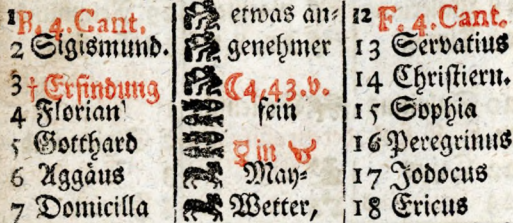 1 B. 4. Cant.
2 Sigismund.
3 † Erfindung
4 Florian
5 Gotthard
6 Aggäus
7 Domicilla
etwas an-
genehmer
☾4,43.v.
fein
♀ in ♉
May-
Wetter,
12 F. 4. Cant.
13 Servatius
14 Christiern.
15 Sophia
16 Peregrinus
17 Jodocus
18 Ericus